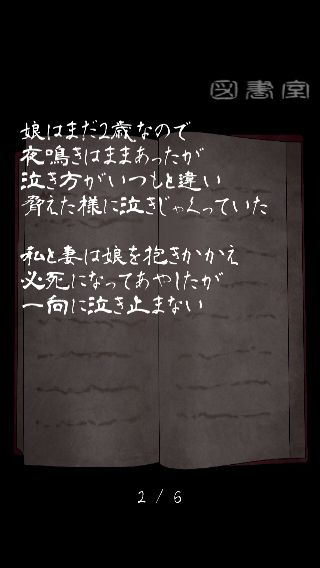 図書室
娘はまだ2歳なので
夜鳴きはままあったが
泣き方がいつもと違い
脅えた様に泣きじゃくっていた
私と妻は娘を抱きかかえ
必死になってあやしたが
一向に泣き止まない
2 / 6